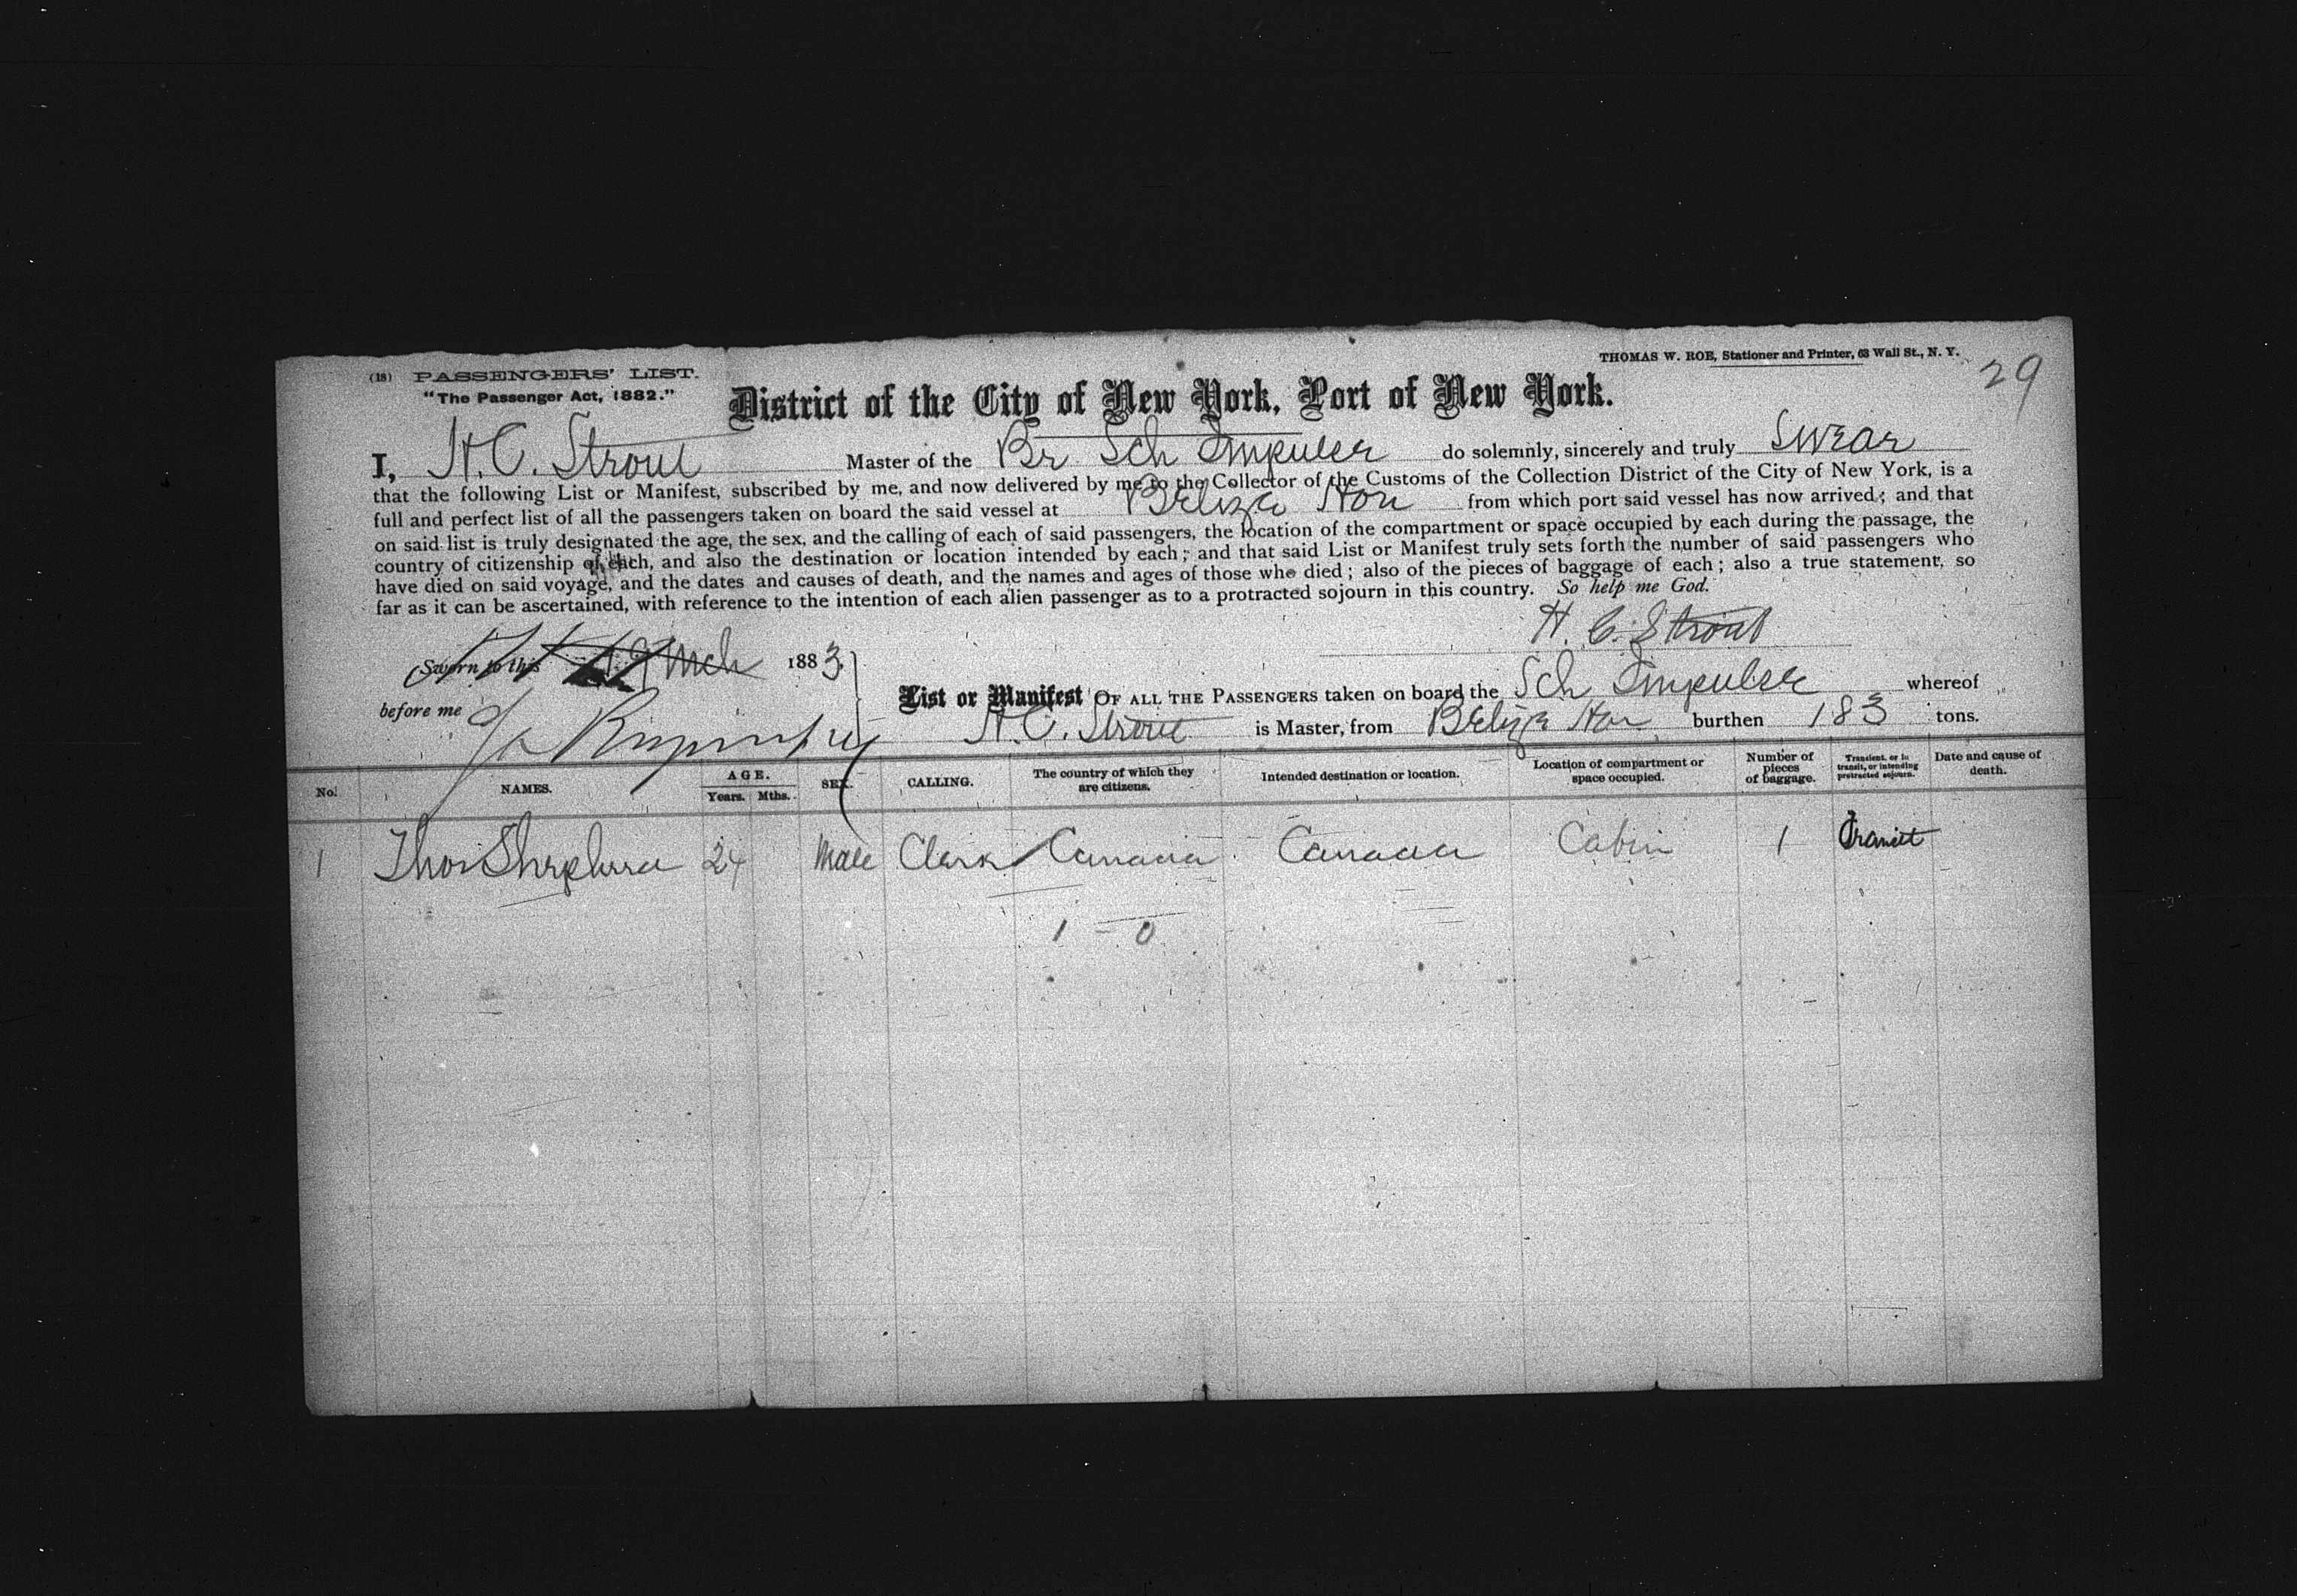 THOMAS W. ROE, Stationer and Printer, 63 Wall St., N. Y.
29
(18) PASSENGERS' LIST.
"The Passenger Act, 1882."
District of the City of New York, Port of New York.
I, H. C. Strout Master of the Br Sch Impulse do solemnly, sincerely and truly Swear
that the following List or Manifest, subscribed by me, and now delivered by me to the Collector of the Customs of the Collection District of the City of New York, is a
full and perfect list of all the passengers taken on board the said vessel at Belize Hon from which port said vessel has now arrived; and that
on said list is truly designated the age, the sex, and the calling of each of said passengers, the location of the compartment or space occupied by each during the passage, the
country of citizenship of each, and also the destination or location intended by each; and that said List or Manifest truly sets forth the number of said passengers who
have died on said voyage, and the dates and causes of death, and the names and ages of those who died; also of the pieces of baggage of each; also a true statement, so
far as it can be ascertained, with reference to the intention of each alien passenger as to a protracted sojourn in this country. So help me God.
H. C. Strout
Sworn to this 19 Mch 1883
before me
List or Manifest OF ALL THE PASSENGERS taken on board the Sch Impulse whereof
H. C. Strout is Master, from Belize Hon burthen 183 tons.
No. NAMES. AGE. Years. Mths. SEX. CALLING. The country of which they are citizens. Intended destination or location. Location of compartment or space occupied. Number of pieces of baggage. Transient, or in transit, or intending protracted sojourn. Date and cause of death.
1 Thos Shepherd 24 Male Clerk Canada Canada Cabin 1 Transit
1 - 0